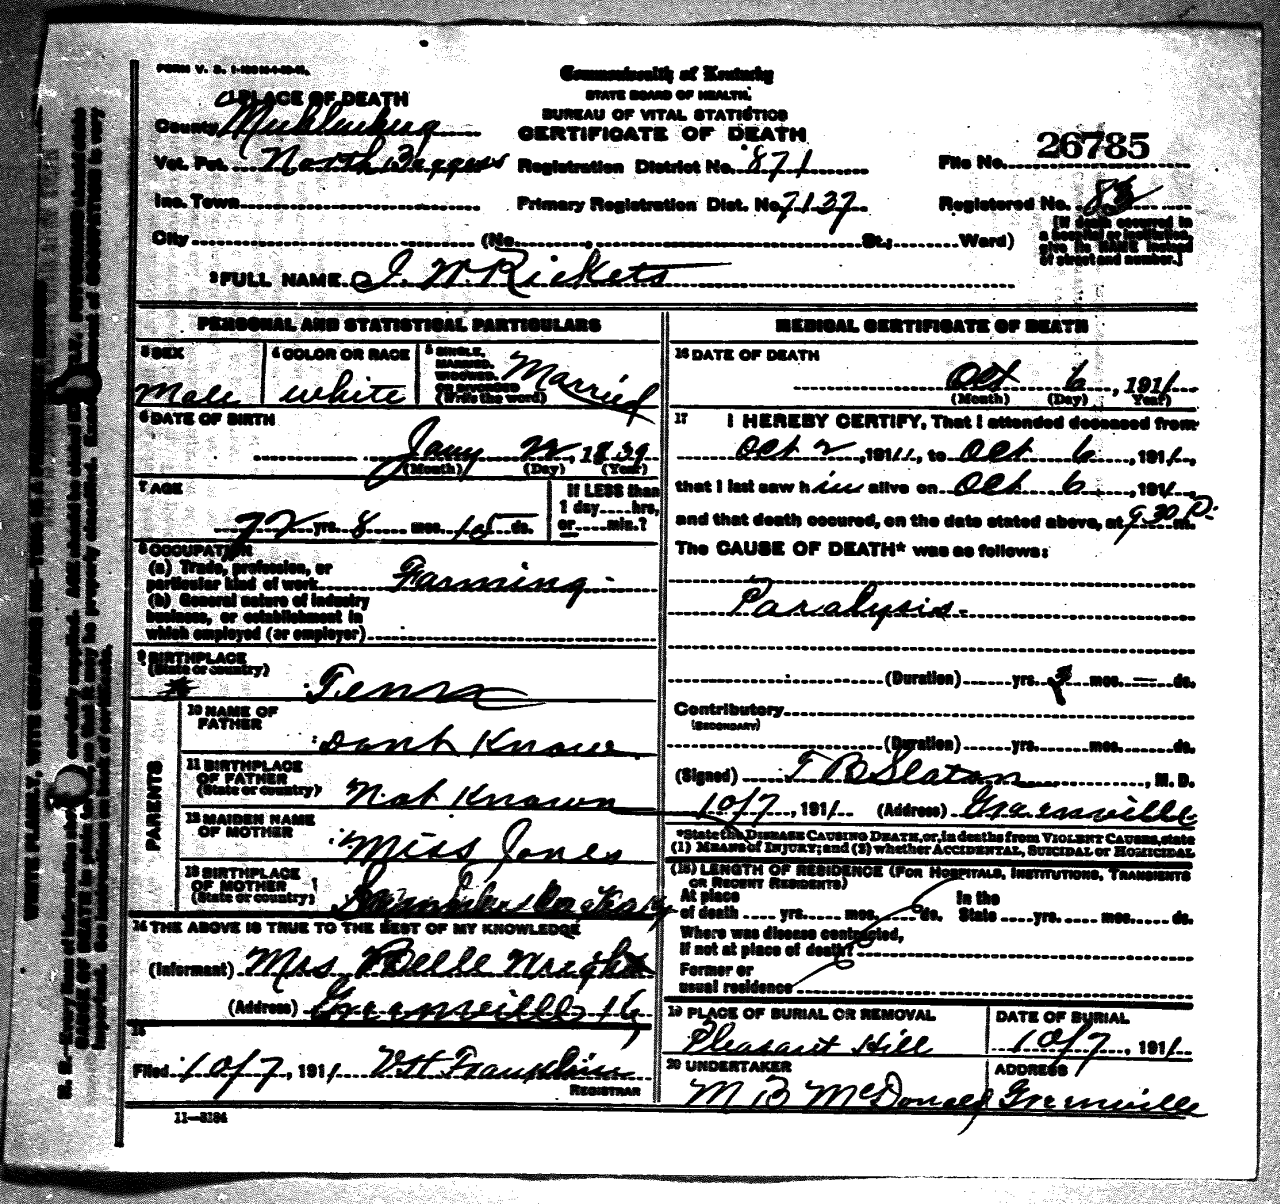 FORM V. S.
Commonwealth of Kentucky
STATE BOARD OF HEALTH.
BUREAU OF VITAL STATISTICS
CERTIFICATE OF DEATH
1 PLACE OF DEATH
County Muhlenberg
Vot. Pct. North Boggess
Inc. Town
City (No. , St.; Ward)
Registration District No. 871
Primary Registration Dist. No. 7137
File No. 26785
Registered No. 83
[If death occurred in
a hospital or institution,
give its NAME instead
of street and number.]
2 FULL NAME J. W. Rickets
PERSONAL AND STATISTICAL PARTICULARS
3 SEX
Male
4 COLOR OR RACE
white
5 SINGLE,
MARRIED,
WIDOWED,
OR DIVORCED
(Write the word)
Married
6 DATE OF BIRTH
Jany 22, 1839
(Month) (Day) (Year)
7 AGE
72 yrs. 8 mos. 15 ds.
If LESS than
1 day....hrs,
or....min.?
8 OCCUPATION
(a) Trade, profession, or
particular kind of work Farming
(b) General nature of industry
business, or establishment in
which employed (or employer)
9 BIRTHPLACE
(State or country)
Tenn
PARENTS
10 NAME OF
FATHER
dont Know
11 BIRTHPLACE
OF FATHER
(State or country)
Not Known
12 MAIDEN NAME
OF MOTHER
Miss Jones
13 BIRTHPLACE
OF MOTHER
(State or country)
14 THE ABOVE IS TRUE TO THE BEST OF MY KNOWLEDGE
(Informant) Mrs Belle Wright
(Address) Greenville
15
Filed 10/7, 1911 V H Franklin
REGISTRAR
11—3184
MEDICAL CERTIFICATE OF DEATH
16 DATE OF DEATH
Oct 6, 1911
(Month) (Day) Year)
17 I HEREBY CERTIFY, That I attended deceased from
Oct 2, 1911, to Oct 6, 1911,
that I last saw him alive on Oct 6, 1911,
and that death occured, on the date stated above, at 9 30 P. m.
The CAUSE OF DEATH* was as follows:
Paralysis
(Duration) yrs. mos. ds.
Contributory
(SECONDARY)
(Duration) yrs. mos. ds.
(Signed) T B Slaton, M. D.
10/7, 1911 (Address) Greenville
*State the DISEASE CAUSING DEATH, or, in deaths from VIOLENT CAUSES, state
(1) MEANS of INJURY; and (2) whether ACCIDENTAL, SUICIDAL or HOMICIDAL
(18) LENGTH OF RESIDENCE (FOR HOSPITALS, INSTITUTIONS, TRANSIENTS
OR RECENT RESIDENTS)
At place
of death .... yrs. mos. ds.
In the
State .... yrs. mos. ds.
Where was disease contracted,
if not at place of death?
Former or
usual residence
19 PLACE OF BURIAL OR REMOVAL
Pleasant Hill
DATE OF BURIAL
10/7, 1911
20 UNDERTAKER
M B McDonald
ADDRESS
Greenville